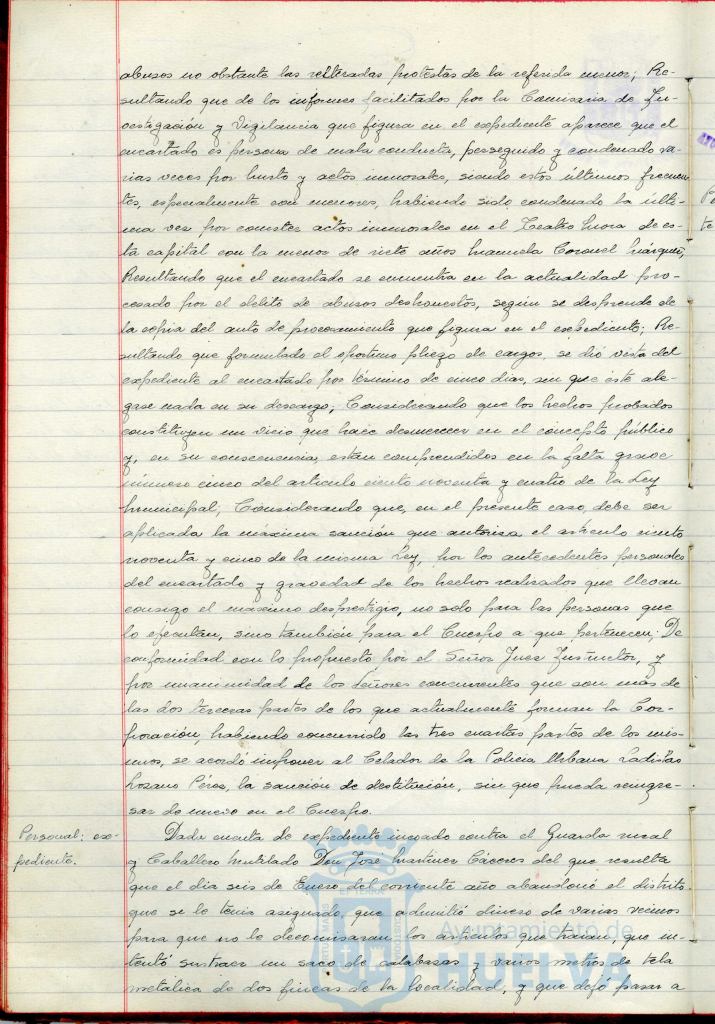 abusos no obstante las reiteradas protestas de la referida menor; Re-
sultando que de los informes facilitados por la Comisaria de In-
vestigación y Vigilancia que figura en el expediente aparece que el
encartado es persona de mala conducta, perseguido y condenado va-
rias veces por hurto y actos inmorales, siendo estos últimos frecuen-
tes, especialmente con menores, habiendo sido condenado la últi-
ma vez por cometer actos inmorales en el Teatro Mora de es-
ta capital con la menor de siete años Manuela Coronel Márquez;
Resultando que el encartado se encuentra en la actualidad pro-
cesado por el delito de abusos deshonestos, según se desprende de
la copia del auto de procesamiento que figura en el expediente; Re-
sultando que formulado el oportuno pliego de cargos, se dió vista del
expediente al encartado por término de cinco dias, sin que éste ale-
gase nada en su descargo; Considerando que los hechos probados
constituyen un vicio que hace desmerecer en el concepto público
y, en su consecuencia, estan comprendidos en la falta grave
número cinco del articulo ciento noventa y cuatro de la Ley
Municipal; Considerando que, en el presente caso, debe ser
aplicada la máxima sanción que autoriza el articulo ciento
noventa y cinco de la misma Ley, por los antecedentes personales
del encartado y gravedad de los hechos realizados que llevan
consigo el maximo desprestigio, no solo para las personas que
lo ejecutan, sino también para el Cuerpo a que pertenecen; De
conformidad con lo propuesto por el Señor Juez Instructor, y
por unanimidad de los Señores concurrentes que son más de
las dos terceras partes de los que actualmente forman la Cor-
poración, habiendo concurrido las tres cuartas partes de los mis-
mos, se acordó imponer al Celador de la Policia Urbana Ladislao
Lozano Pérez, la sanción de destitución, sin que pueda reingre-
sar de nuevo en el Cuerpo.
Personal: ex-
pediente.
Dada cuenta de expediente incoado contra el Guarda rural
y Caballero Mutilado Don José Martinez Cáceres del que resulta
que el dia seis de Enero del corriente año abandonó el distrito
que se le tenia asignado, que admitió dinero de varios vecinos
para que no le decomisaran los articulos que traian, que in-
tentó sustraer un saco de calabazas y varios metros de tela
metálica de dos fincas de la localidad, y que dejó pasar a
Ayuntamiento de
HUELVA